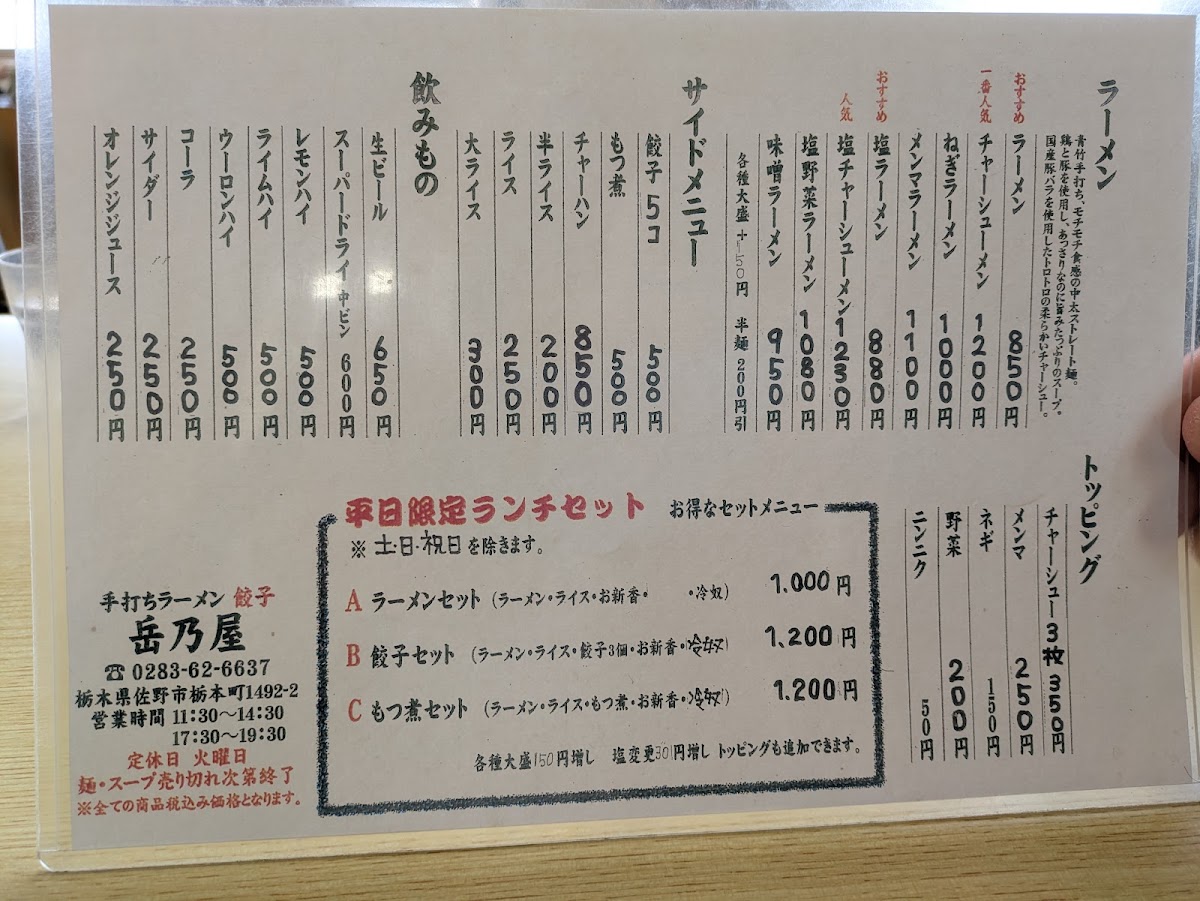 ラーメン
青竹手打ち、モチモチ食感の中太ストレート麺。
鶏と豚を使用し、あっさりなのに旨みたっぷりのスープ。
国産豚バラを使用したトロトロの柔らかいチャーシュー。
おすすめ
ラーメン 850円
一番人気
チャーシューメン 1200円
ねぎラーメン 1000円
メンマラーメン 1100円
おすすめ
塩ラーメン 880円
人気
塩チャーシューメン 1230円
塩野菜ラーメン 1080円
味噌ラーメン 950円
各種大盛+150円 半麺200円引
サイドメニュー
餃子5コ 500円
もつ煮 500円
チャーハン 850円
半ライス 200円
ライス 250円
大ライス 300円
飲みもの
生ビール 650円
スーパードライ 中ビン 600円
レモンハイ 500円
ライムハイ 500円
ウーロンハイ 500円
コーラ 250円
サイダー 250円
オレンジジュース 250円
トッピング
チャーシュー3枚 350円
メンマ 250円
ネギ 150円
野菜 200円
ニンニク 50円
平日限定ランチセット お得なセットメニュー
※ 土・日・祝日を除きます。
A ラーメンセット (ラーメン・ライス・お新香・ ・冷奴) 1.000円
B 餃子セット (ラーメン・ライス・餃子3個・お新香・冷奴) 1.200円
C もつ煮セット (ラーメン・ライス・もつ煮・お新香・冷奴) 1.200円
各種大盛150円増し 塩変更30円増し トッピングも追加できます。
手打ちラーメン 餃子
岳乃屋
☎ 0283-62-6637
栃木県佐野市栃本町1492-2
営業時間 11:30～14:30
17:30～19:30
定休日 火曜日
麺・スープ売り切れ次第終了
※全ての商品税込み価格となります。